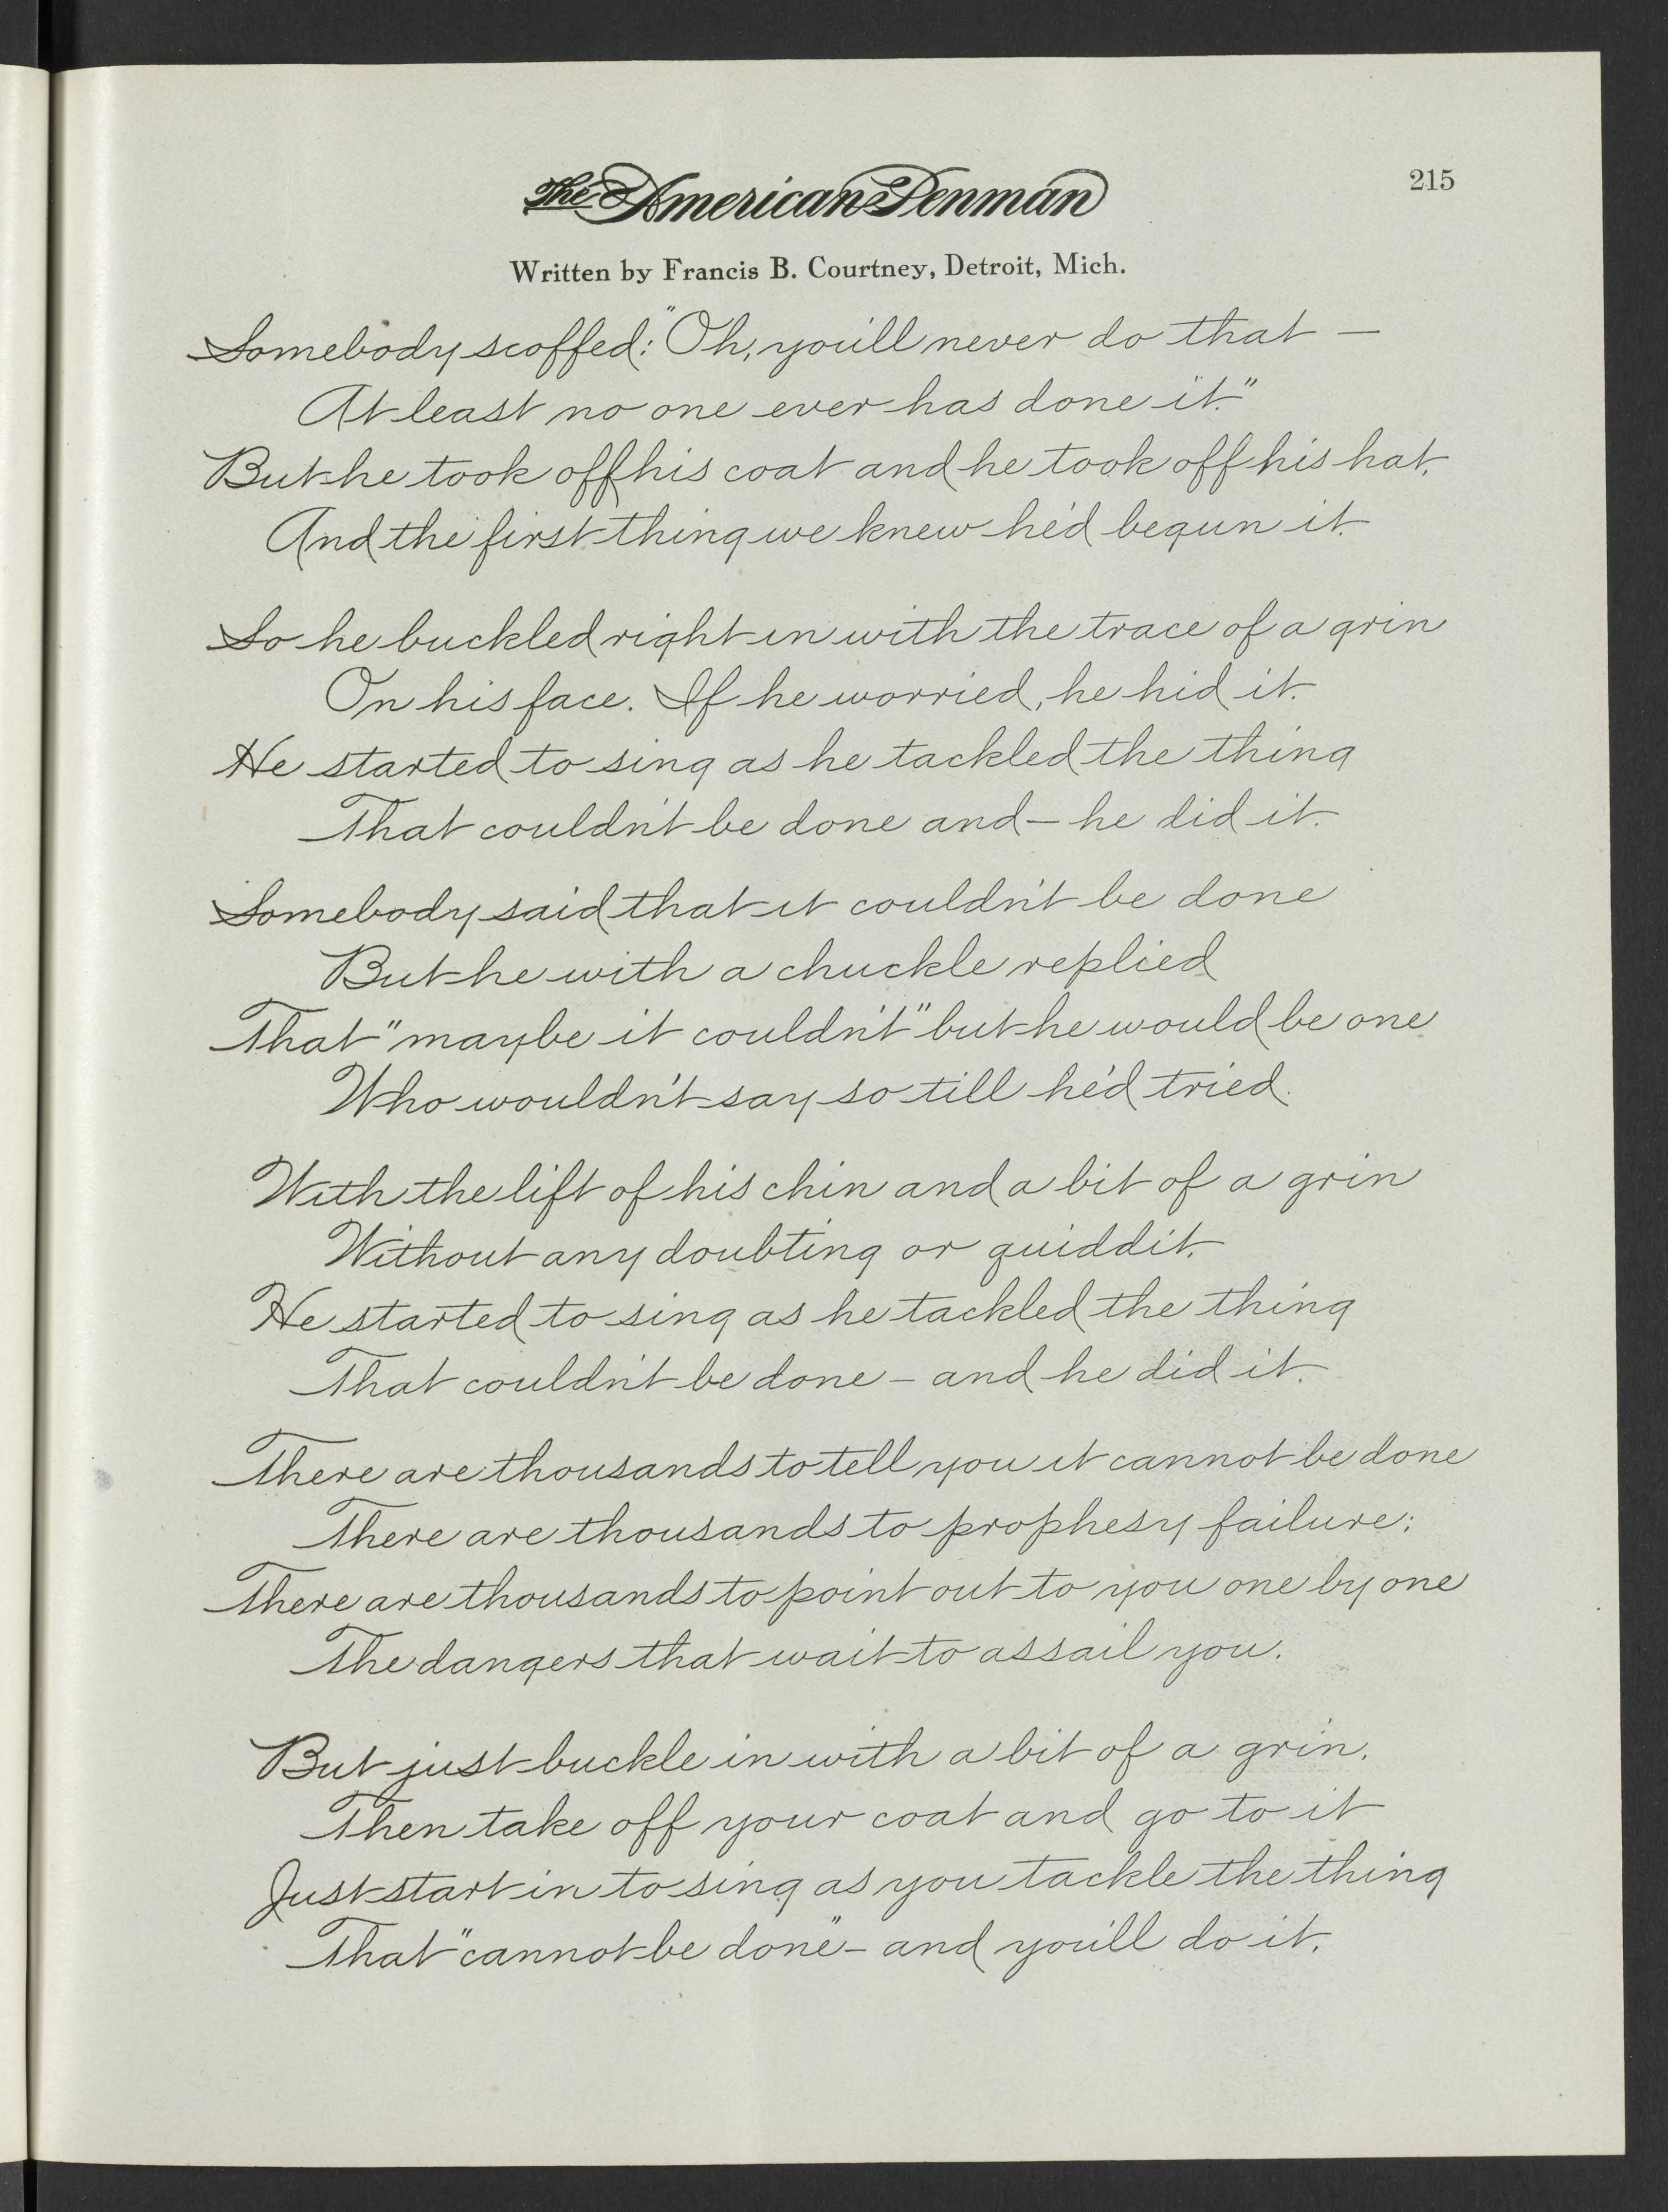 The American Penman
215
Written by Francis B. Courtney, Detroit, Mich.
Somebody scoffed: "Oh, you'll never do that —
At least no one ever has done it."
But he took off his coat and he took off his hat,
And the first thing we knew he'd begun it.
So he buckled right in with the trace of a grin
On his face. If he worried, he hid it.
He started to sing as he tackled the thing
That couldn't be done and — he did it.
Somebody said that it couldn't be done
But he with a chuckle replied
That "maybe it couldn't" but he would be one
Who wouldn't say so till he'd tried.
With the lift of his chin and a bit of a grin
Without any doubting or quiddit,
He started to sing as he tackled the thing
That couldn't be done – and he did it.
There are thousands to tell you it cannot be done
There are thousands to prophesy failure;
There are thousands to point out to you one by one
The dangers that wait to assail you.
But just buckle in with a bit of a grin,
Then take off your coat and go to it
Just start in to sing as you tackle the thing
That "cannot be done" – and you'll do it.